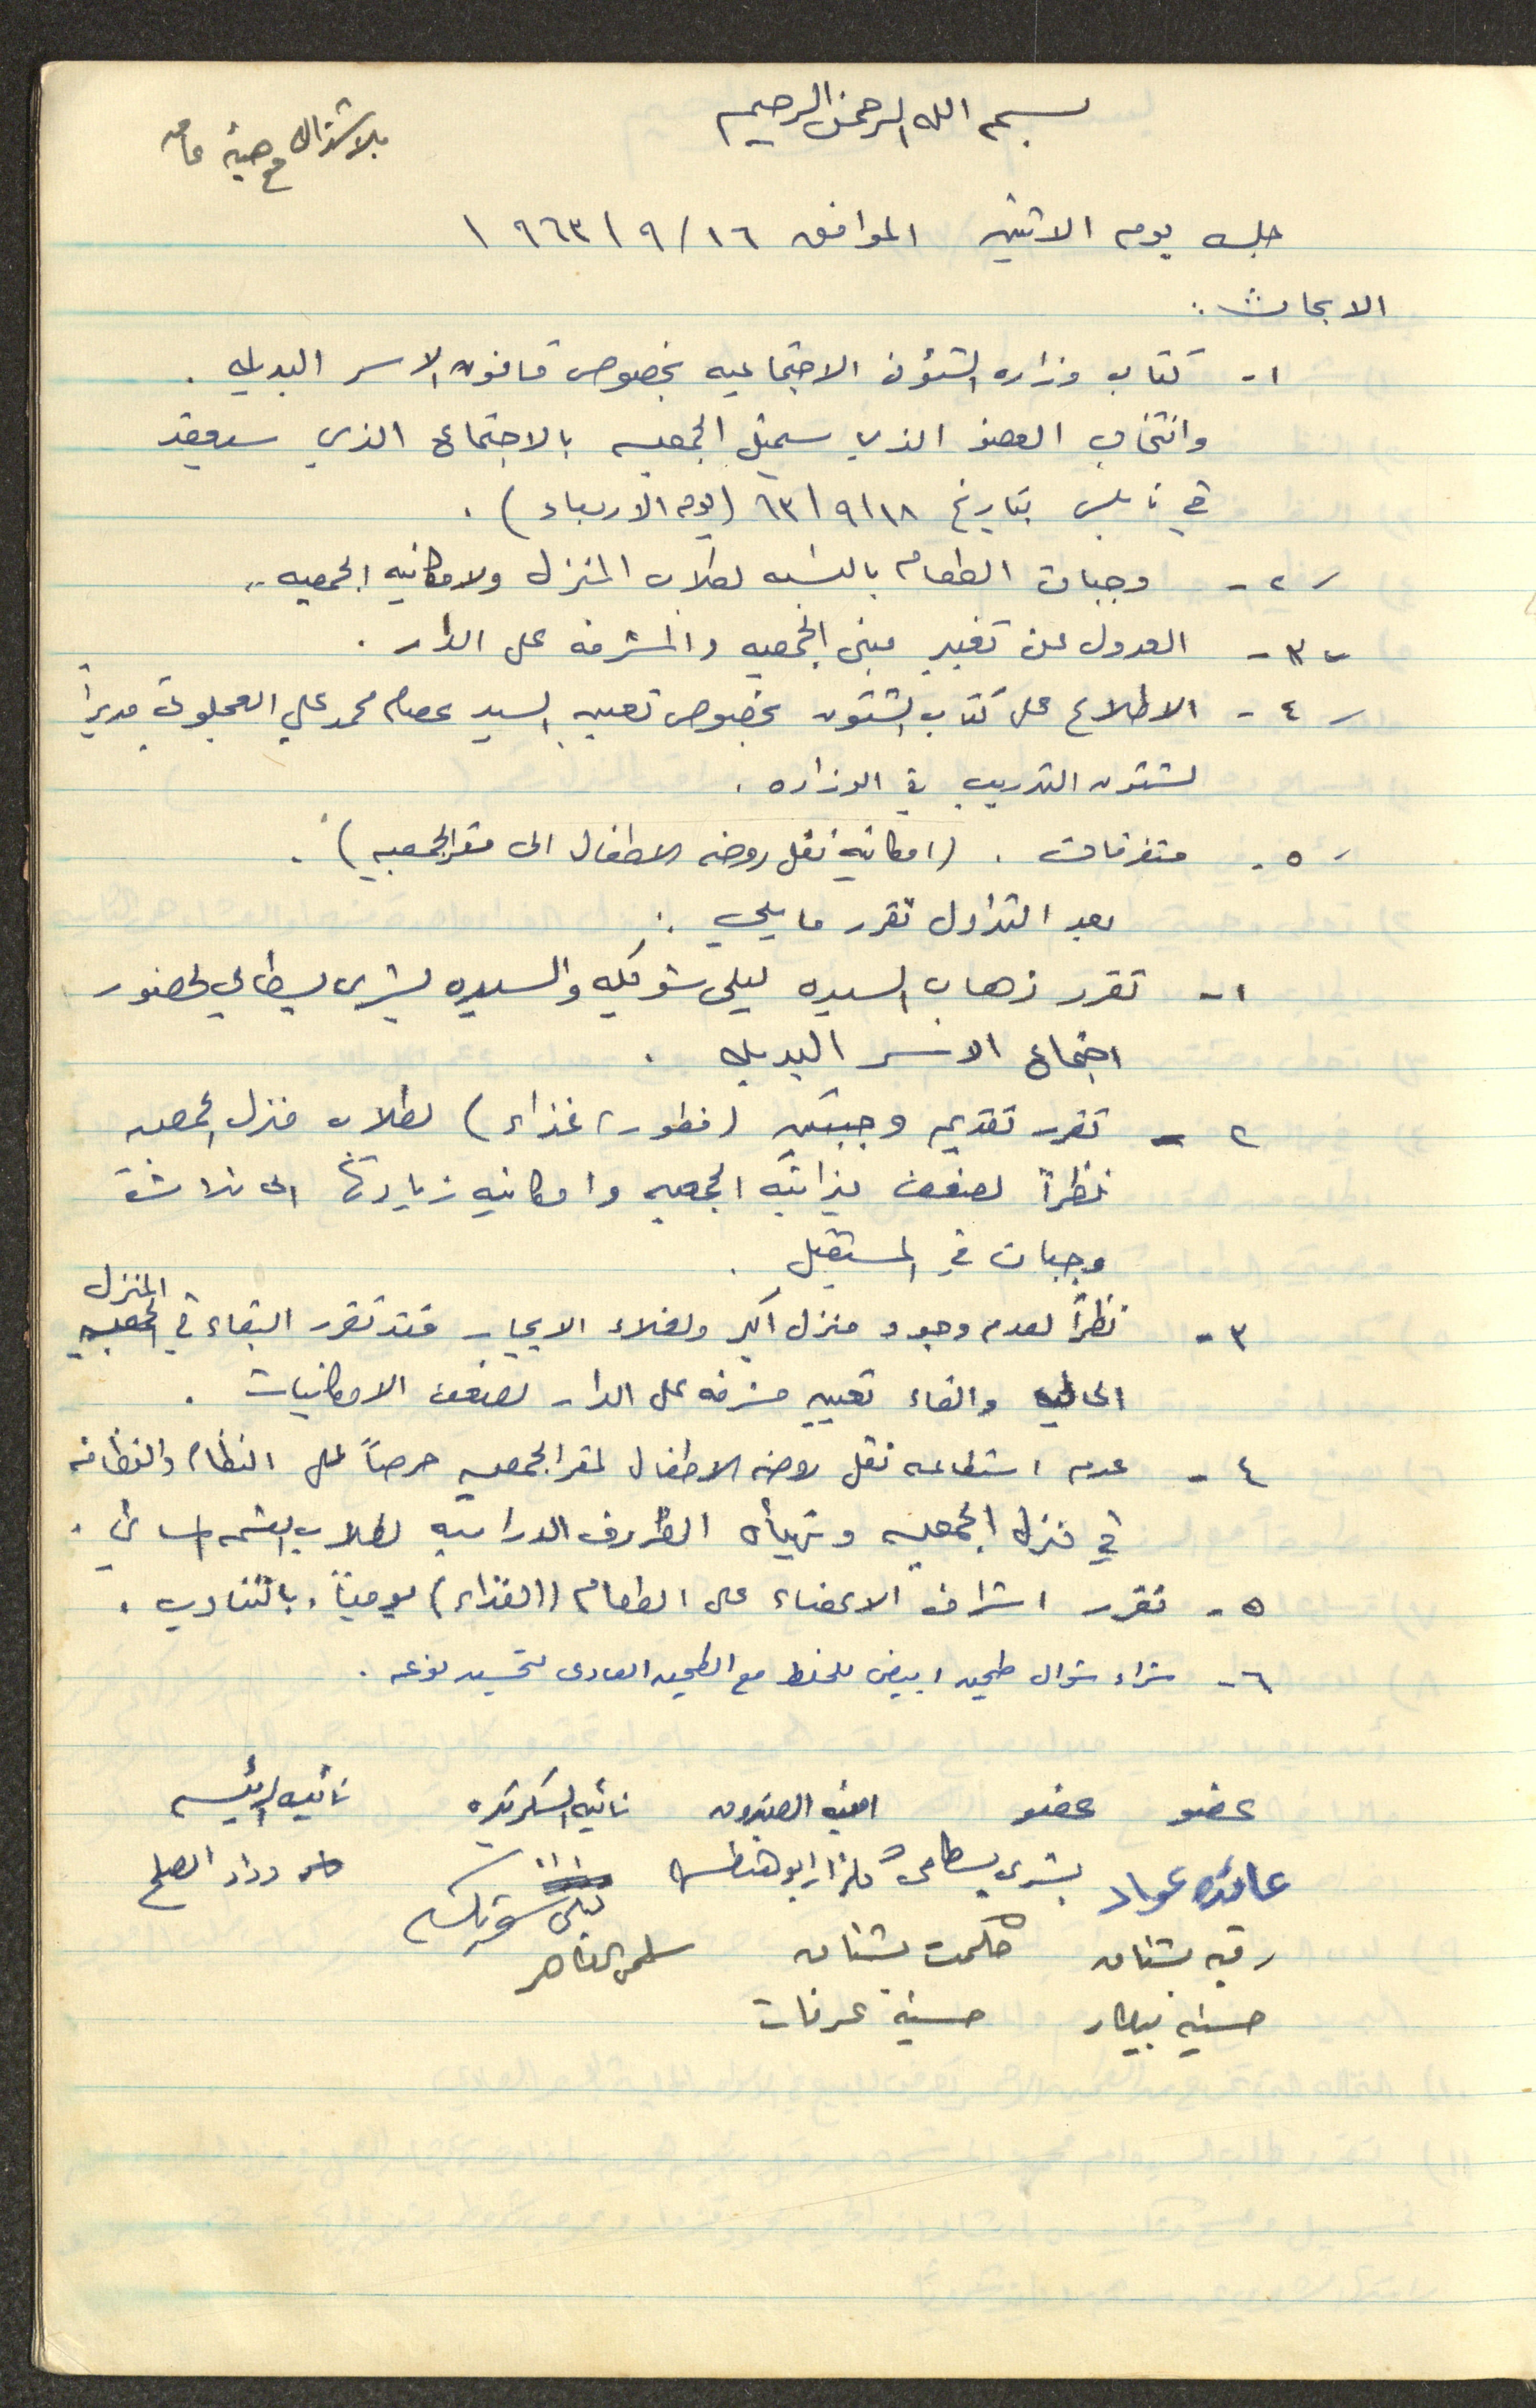 بسم الله الرحمن الرحيم
بالاشتراك مع هيئة عامه
جلسه يوم الاثنين الموافق ١٦/٩/١٩٦٣
الابحاث:
١- كتاب وزاره الشؤون الاجتماعيه بخصوص قانون الاسر البديله.
وانتخاب العضو الذي سيمثل الجمعيه بالاجتماع الذي سيعقد
في نابلس بتاريخ ١٨/٩/٦٣ (يوم الاربعاء).
٢- وجبات الطعام بالنسبه لطلاب المنزل ولامكانيه الجمعيه..
٣- العدول عن تغيير مبنى الجمعيه والمشرفه على الدار.
٤- الاطلاع على كتاب الشئون بخصوص تعيين السيد عصام محمد علي العجلوني مديراً
لشئون التدريب في الوزاره.
٥- متفرقات. (امكانية نقل روضه الاطفال الى مقر الجمعيه).
بعد التداول تقرر ما يلي:
١- تقرر ذهاب السيده ليلى شويكه والسيده بشرى بسطامي لحضور
اجتماع الاسر البديله.
٢- تقرر تقديم وجبتين (فطور، غذاء) لطلاب منزل الجمعيه
نظراً لضعف ميزانية الجمعيه وامكانيه زيادتها الى ثلاثة
وجبات في المستقبل.
٣- نظراً لعدم وجود منزل اكبر ولغلاء الايجار فقد تقرر البقاء في الجمعيه المنزل
الحاليه والغاء تعيين مشرفه على الدار لضعف الامكانيات.
٤- عدم استطاعه نقل روضه الاطفال لمقر الجمعيه حرصاً على النظام والنظافه
في منزل الجمعيه وتهيأة الظروف الدراسيه لطلاب القسم المسائي.
٥- تقرر اشراف الاعضاء على الطعام (الغذاء) يومياً، بالتناوب.
٦- شراء شوال طحين ابيض للخلط مع الطحين العادى لتحسين نوعه.
عضو عضو امينه الصندوق نائبه السكرتيره نائبه الرئيسه
عائده عواد بشرى بسطامي ابو هنطش ليلى شويكه وداد الصلح
رقيه بشناق حكمت بشناق سلمى الظاهر
حسنيه بيطار حسنية عرفات